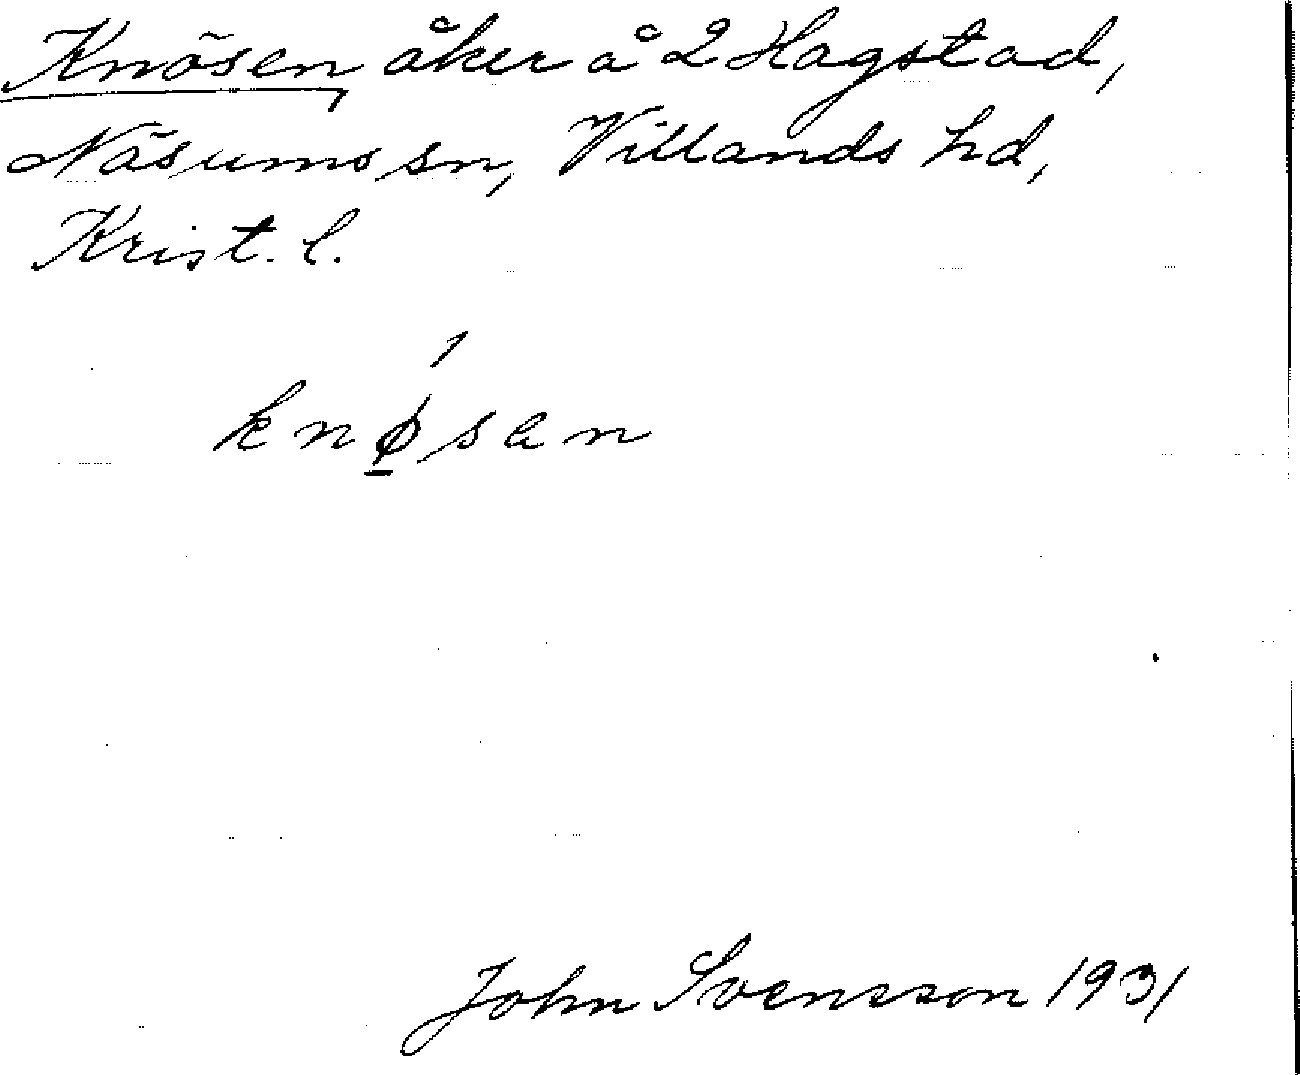 Knösen, åker å 2 Hagstad,
Näsums sn, Villands hd,
Krist. l.
knǿ̱san
John Svensson 1931